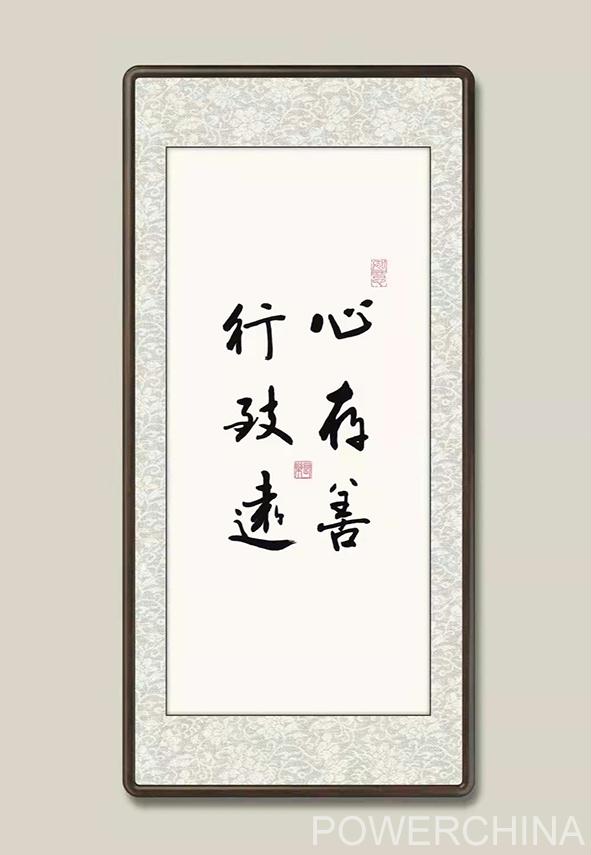 心存善
行致遠
POWERCHINA